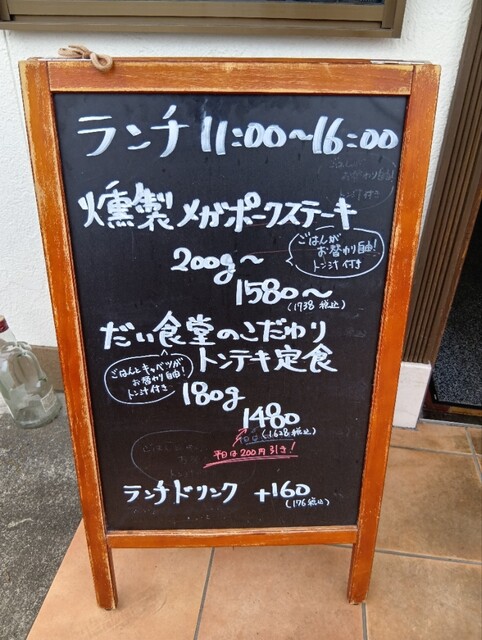 ランチ 11:00～16:00
燻製 メガポークステーキ
200g～
ごはんが
お替わり自由!
トン汁付き
1580～
(1738 税込)
だい食堂のこだわり
トンテキ定食
ごはんとキャベツが
お替わり自由!
トン汁付き
180g
1480
(1628税込)
平日は200円引き!
ランチドリンク +160
(176税込)